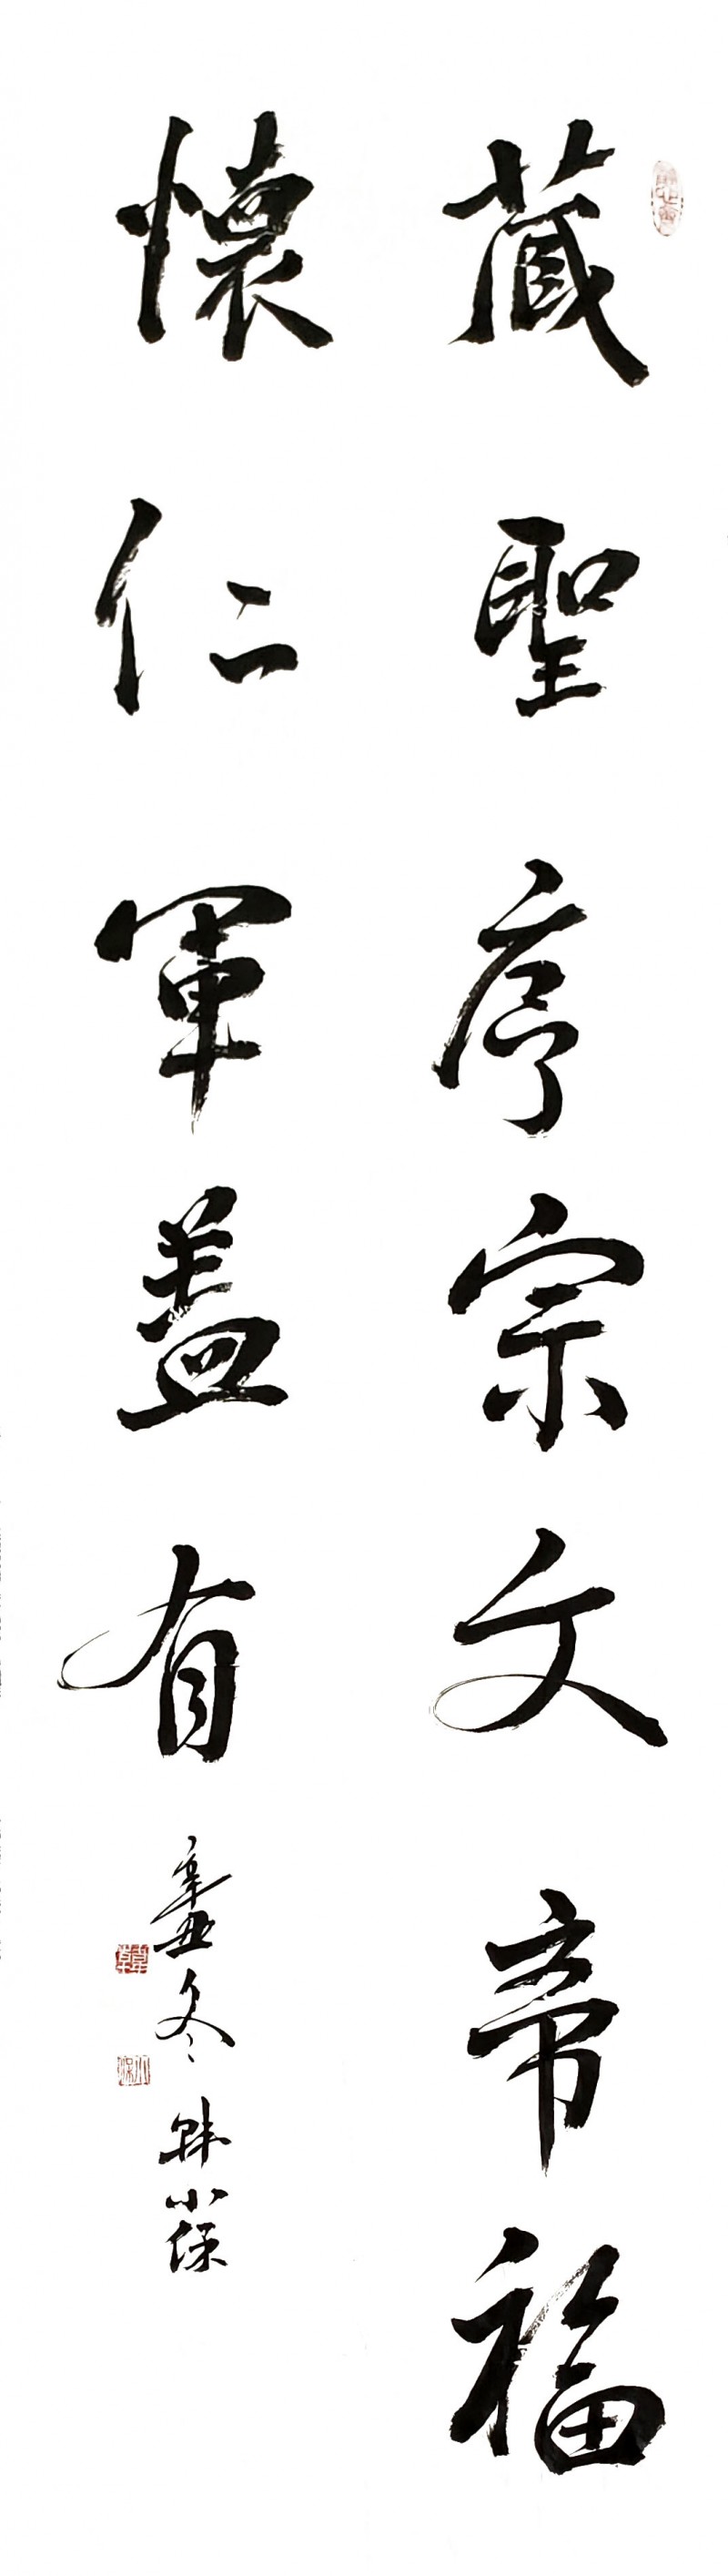 藏聖序宗文帝福
懷仁軍蓋有
辛丑冬韩小保